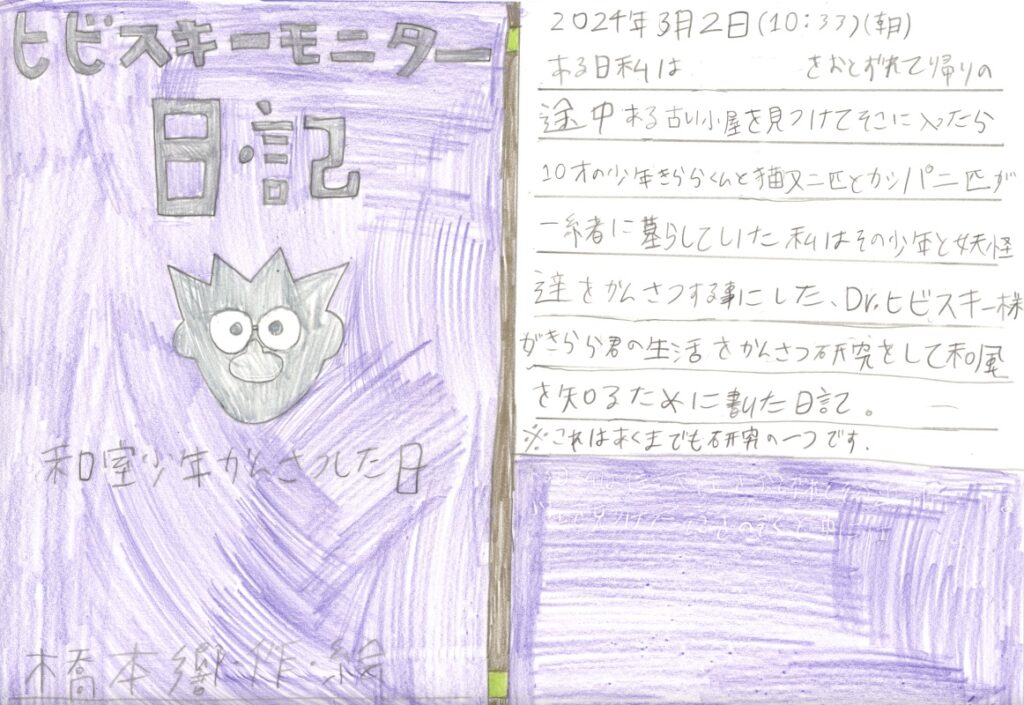 ヒビスキーモニター
日記
和室少年かんさつした日
橋本響・作・絵
2024年3月2日(10:33)(朝)
ある日私は さおとずれて帰りの
途中ある古い小屋を見つけてそこに入ったら
10才の少年きららくんと猫又二匹とカッパ二匹が
一緒に暮らしていた私はその少年と妖怪
達をかんさつする事にした、Dr.ヒビスキー様
がきらら君の生活をかんさつ研究をして和風
を知るために書いた日記。
※これはあくまでも研究の一つです.